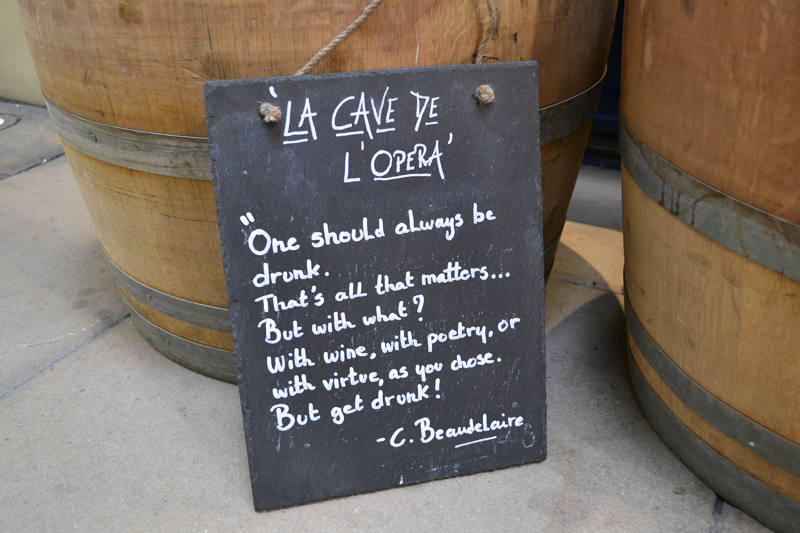 'LA CAVE DE
L'OPERA'
"One should always be
drunk.
That's all that matters...
But with what?
With wine, with poetry, or
with virtue, as you chose.
But get drunk!
- C. Beaudelaire